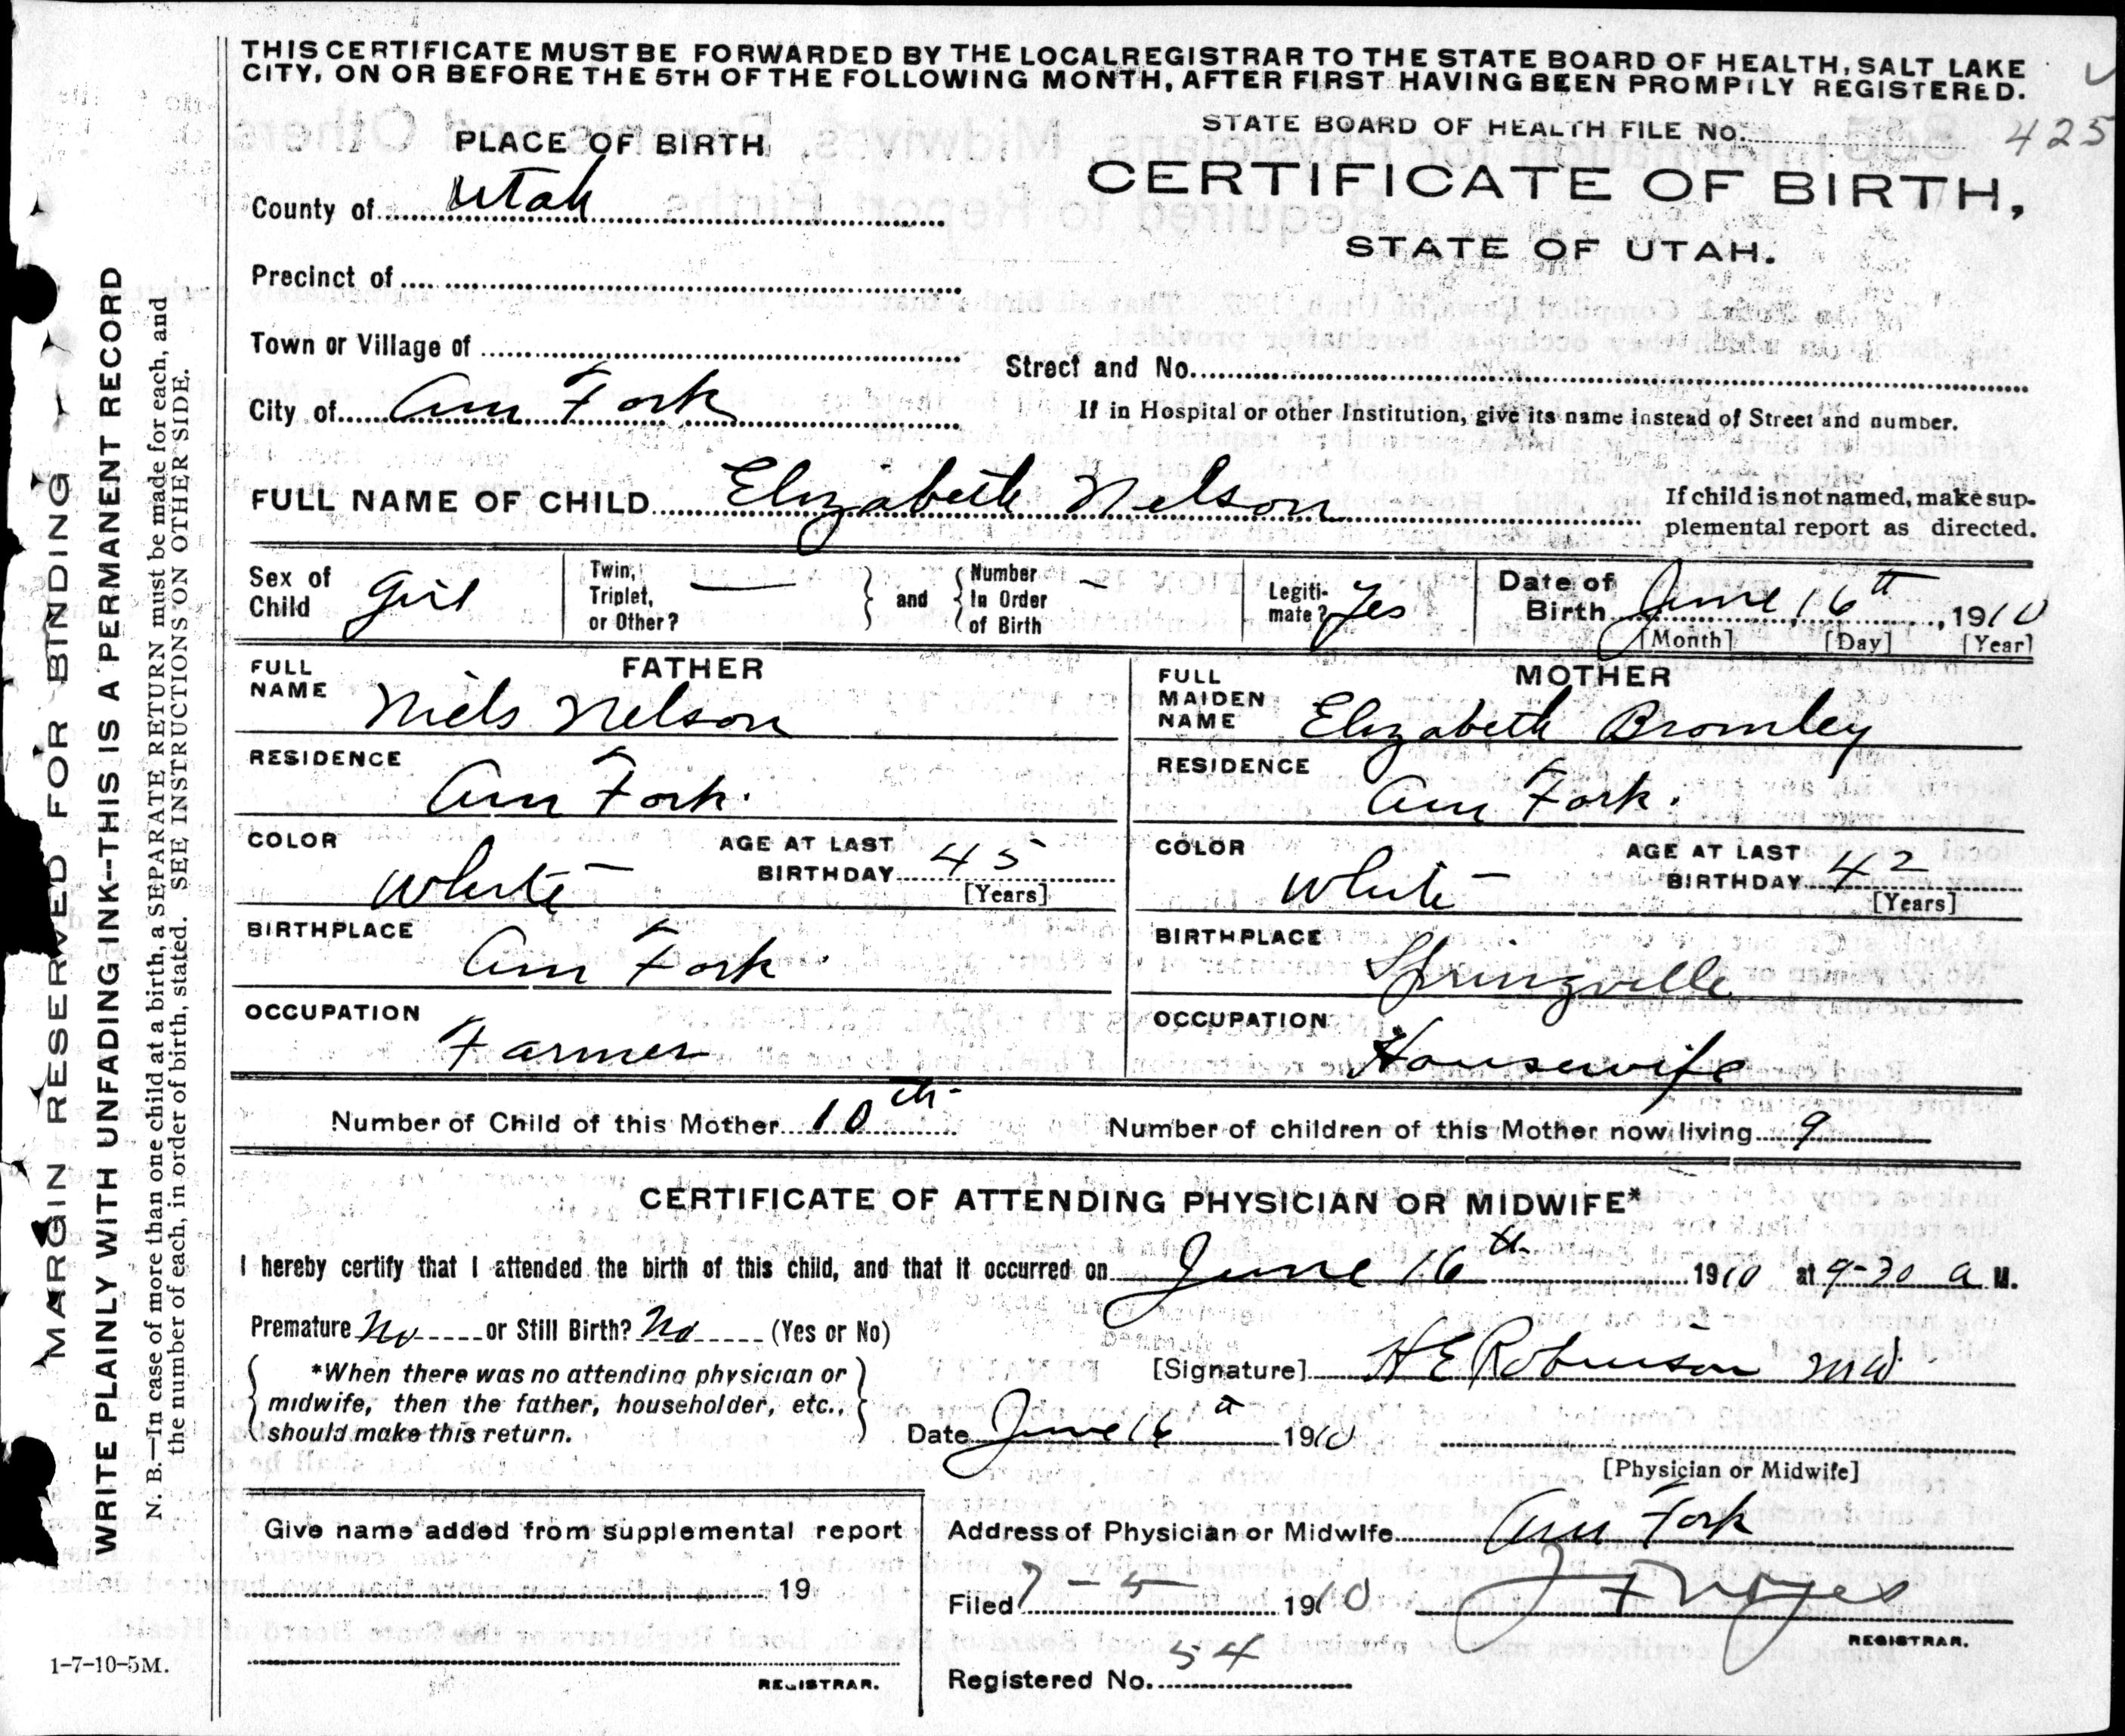 THIS CERTIFICATE MUST BE FORWARDED BY THE LOCAL REGISTRAR TO THE STATE BOARD OF HEALTH, SALT LAKE
CITY, ON OR BEFORE THE 5TH OF THE FOLLOWING MONTH, AFTER FIRST HAVING BEEN PROMPILY REGISTERED.
STATE BOARD OF HEALTH FILE NO. 425
PLACE OF BIRTH
CERTIFICATE OF BIRTH,
STATE OF UTAH.
County of Utah
Precinct of
Town or Village of
Street and No.
City of Am Fork
If in Hospital or other Institution, give its name instead of Street and number.
FULL NAME OF CHILD Elizabeth Nelson
If child is not named, make sup-
plemental report as directed.
Sex of Child Girl
Twin, Triplet, or Other? —
and
Number In Order of Birth –
Legiti-mate? Yes
Date of Birth June 16th, 1910
[Month] [Day] [Year]
FATHER
FULL NAME Niels Nelson
RESIDENCE Am Fork.
COLOR White
AGE AT LAST BIRTHDAY 45
[Years]
BIRTHPLACE Am Fork
OCCUPATION Farmer
MOTHER
FULL MAIDEN NAME Elizabeth Bromley
RESIDENCE Am Fork.
COLOR White
AGE AT LAST BIRTHDAY 42
[Years]
BIRTHPLACE Springville
OCCUPATION Housewife
Number of Child of this Mother 10th
Number of children of this Mother now living 9
CERTIFICATE OF ATTENDING PHYSICIAN OR MIDWIFE*
I hereby certify that I attended the birth of this child, and that it occurred on June 16th 1910 at 9-30 a M.
Premature No or Still Birth? No (Yes or No)
*When there was no attending physician or
midwife, then the father, householder, etc.,
should make this return.
[Signature] H E Robinson MD
Date June 16th 1910
[Physician or Midwife]
Give name added from supplemental report
19
REGISTRAR.
Address of Physician or Midwife Am Fork
Filed 7-5 1910 J F Noyes
REGISTRAR.
Registered No. 54
1-7-10-5M.
MARGIN RESERVED FOR BINDING
WRITE PLAINLY WITH UNFADING INK--THIS IS A PERMANENT RECORD
N. B.—In case of more than one child at a birth, a SEPARATE RETURN must be made for each, and
the number of each, in order of birth, stated. SEE INSTRUCTIONS ON OTHER SIDE.